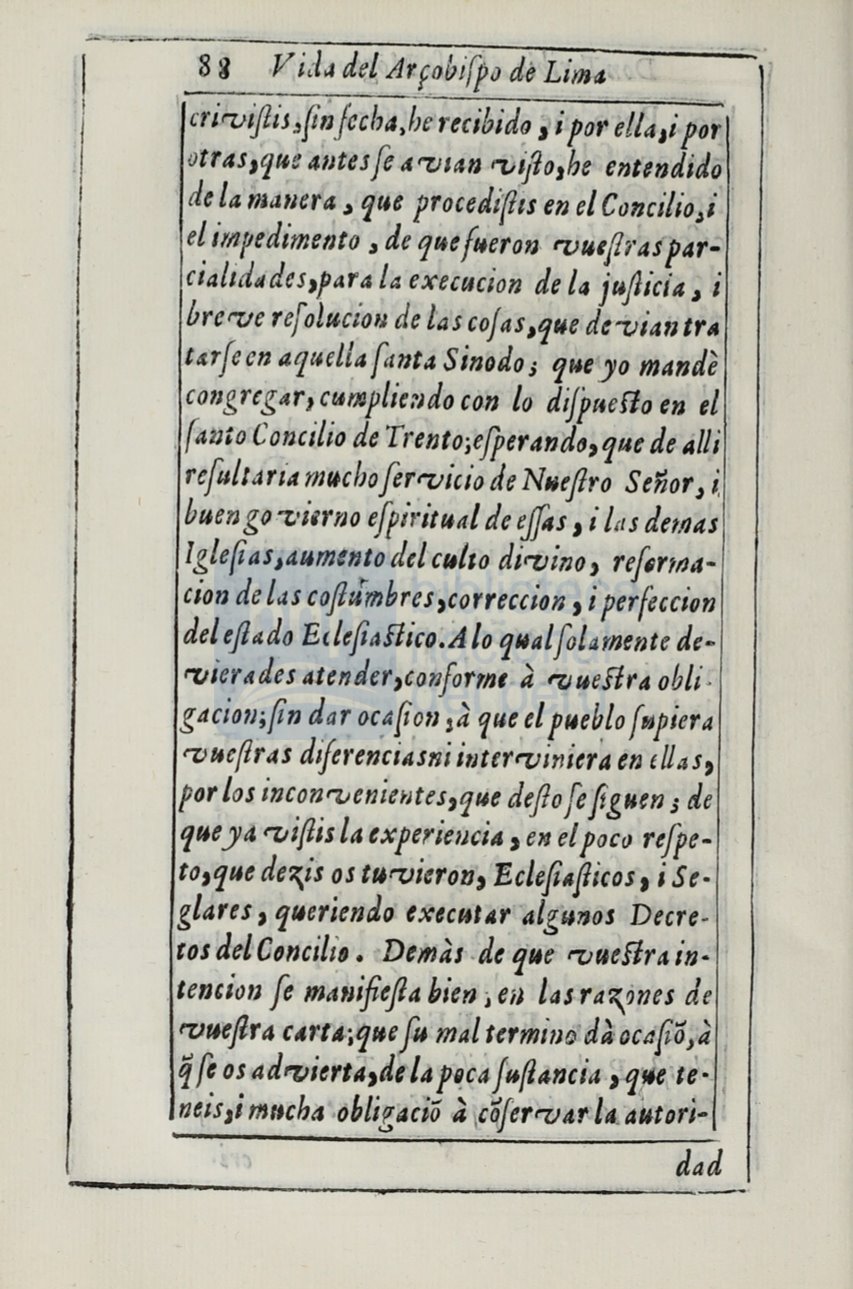 88 Vida del Arçobiſpo de Lima
criviſtis, ſin fecha, he recibido, i por ella, i por
otras, que antes ſe avian viſto, he entendido
de la manera, que procediſtis en el Concilio, i
el impedimento, de que fueron vueſtras par-
cialidades, para la execucion de la juſticia, i
breve reſolucion de las coſas, que devian tra
tarſe en aquella ſanta Sinodo; que yo mandè
congregar, cumpliendo con lo diſpueſto en el
ſanto Concilio de Trento; eſperando, que de alli
reſultaria mucho ſervicio de Nueſtro Señor, i
buen govierno eſpiritual de eſſas, i las demas
Igleſias, aumento del culto divino, reforma-
cion de las coſtumbres, correccion, i perfeccion
del eſtado Ecleſiaſtico. A lo qual ſolamente de-
vierades atender, conforme à vueſtra obli-
gacion; ſin dar ocaſion, à que el pueblo ſupiera
vueſtras diferencias ni interviniera en ellas,
por los inconvenientes, que deſto ſe ſiguen; de
que ya viſtis la experiencia, en el poco reſpe-
to, que dezis os tuvieron, Ecleſiaſticos, i Se-
glares, queriendo executar algunos Decre-
tos del Concilio. Demàs de que vueſtra in-
tencion ſe manifieſta bien, en las razones de
vueſtra carta; que ſu mal termino dà ocaſiõ, à
q̃ ſe os advierta, de la poca ſuſtancia, que te-
neis, i mucha obligaciõ à cõſervar la autori-
dad